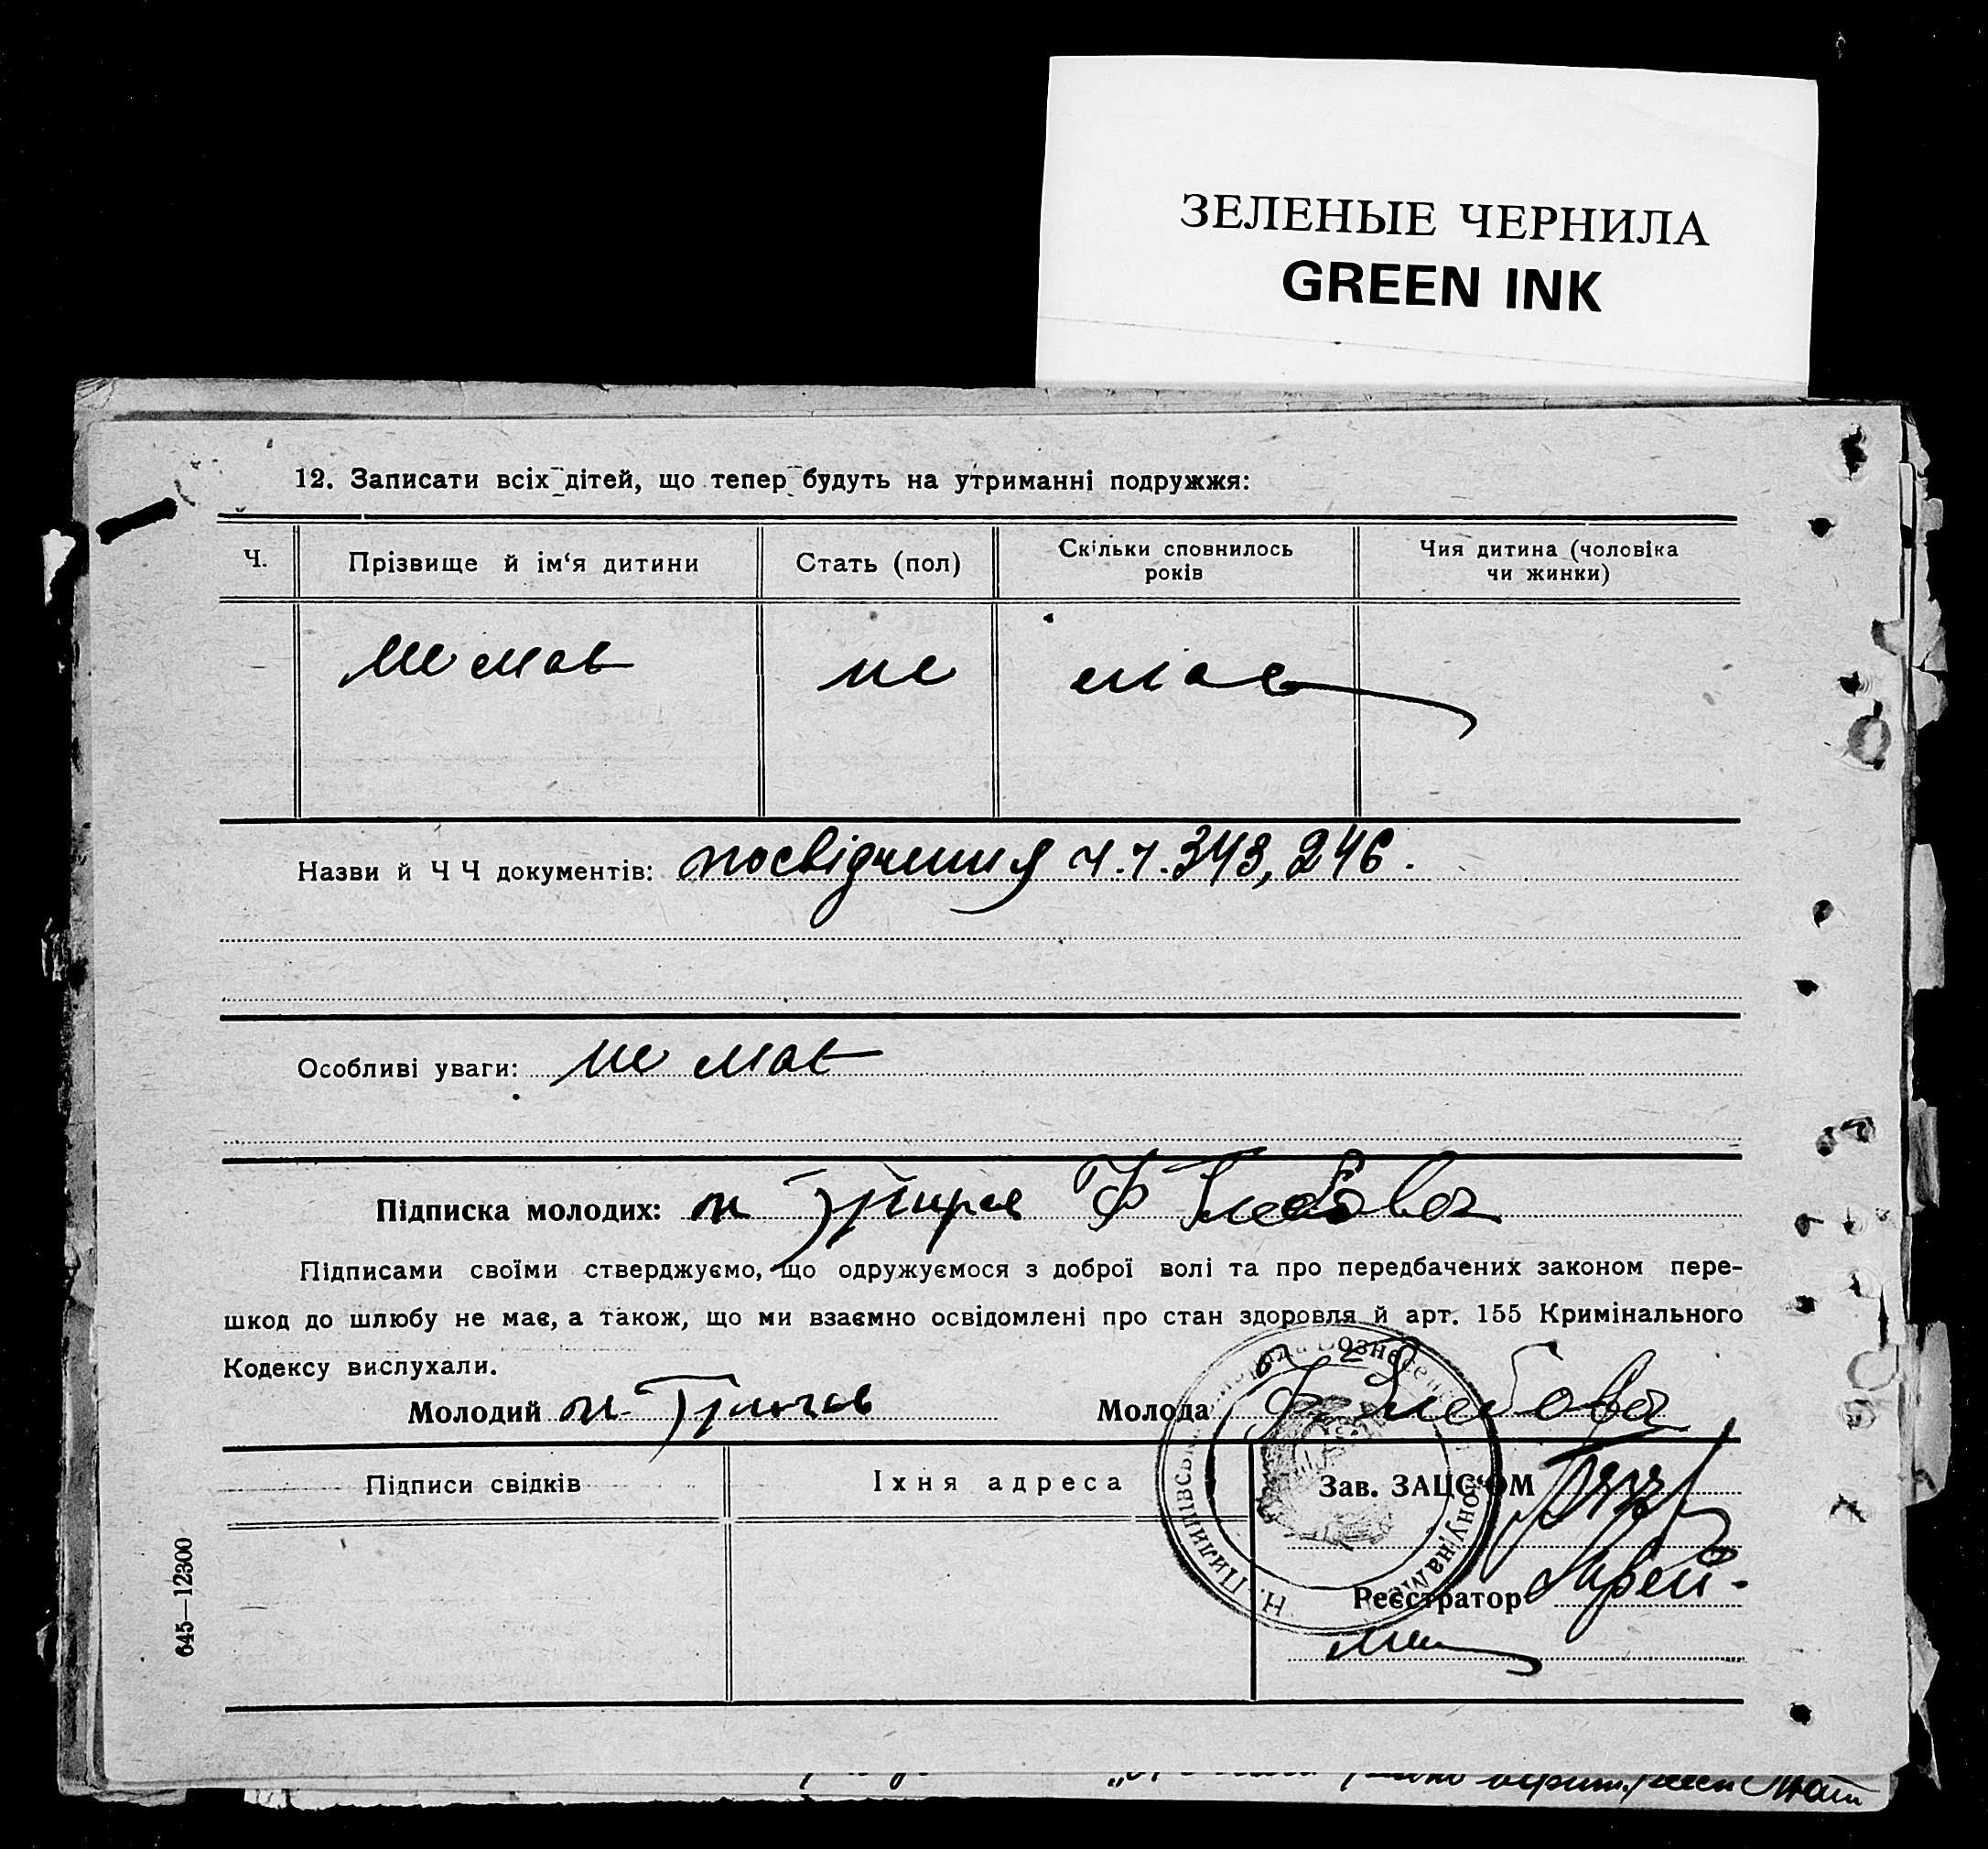 ЗЕЛЕНЫЕ ЧЕРНИЛА
GREEN INK
12. Записати всіх дітей, що тепер будуть на утриманні подружжя:
Ч. Прізвище й ім‘я дитини Стать (пол) Скільки сповнилось років Чия дитина (чоловіка чи жинки)
не має не має
Назви й Ч Ч документів: посвідчення ч.ч. 343, 246.
Особливі уваги: не має
Підписка молодих:
Підписами своїми стверджуємо, що одружуємося з доброї волі та про передбачених законом пере-
шкод до шлюбу не має, а також, що ми взаємно освідомлені про стан здоровля й арт. 155 Кримінального
Кодексу вислухали.
Молодий Молода
Підписи свідків Їхня адреса Зав. ЗАЦС‘ОМ
Реєстратор
645—12300